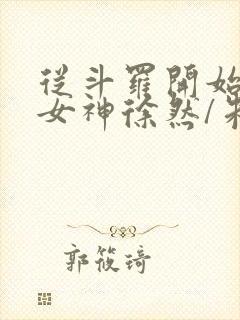 從斗羅開始
女神徐然/朱
郭筱琦